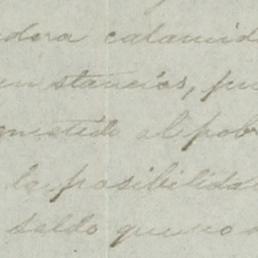 dora calamid
cunstancias, pu
metido al pob
la posibilida
saldo que no